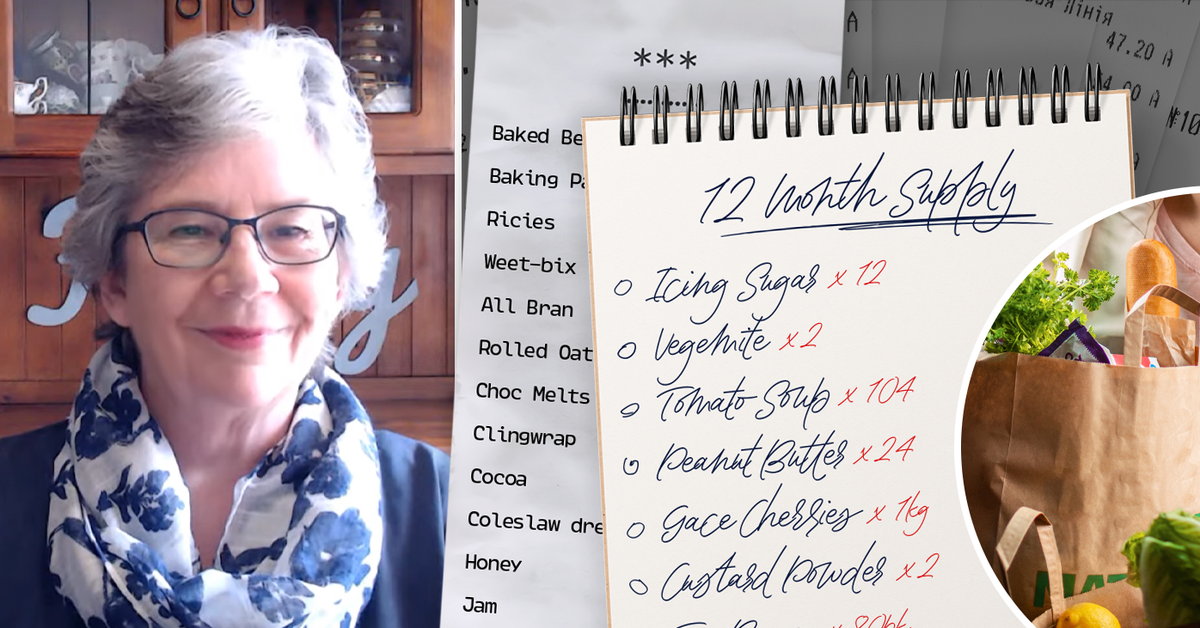 ***
Baked Be
Baking Pa
Ricies
Weet-bix
All Bran
Rolled Oat
Choc Melts
Clingwrap
Cocoa
Coleslaw dre
Honey
Jam
12 Month Supply
Icing Sugar x 12
Vegemite x 2
Tomato Soup x 104
Peanut Butter x 24
Gace Cherries x 1kg
Custard Powder x 2
47.20 А